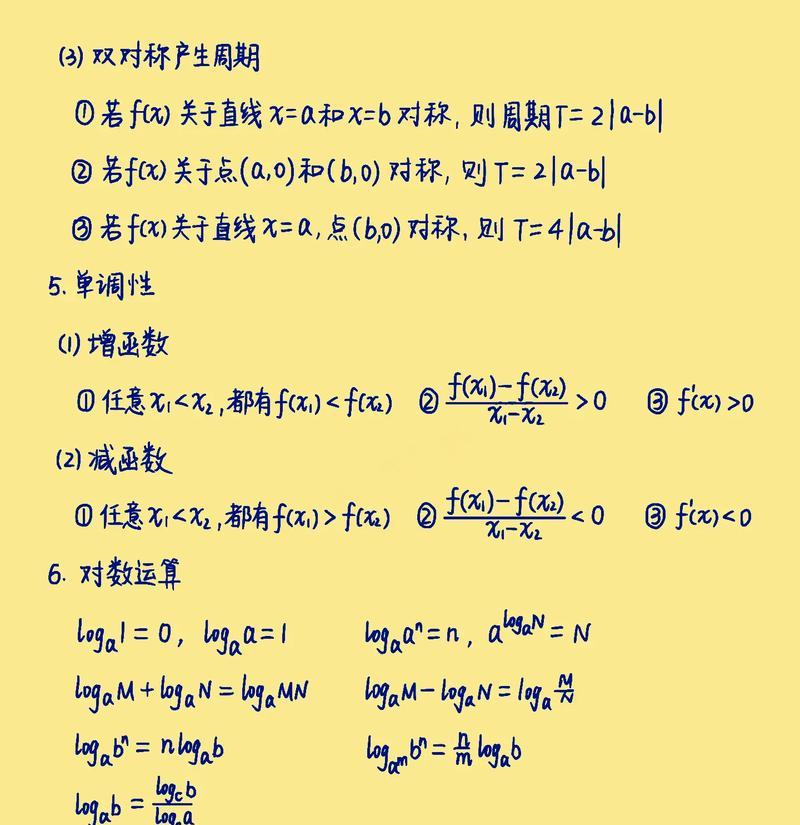 (3) 双对称产生周期
① 若f(x)关于直线x=a和x=b对称, 则周期T=2|a-b|
② 若f(x)关于点(a,0)和(b,0)对称, 则T=2|a-b|
③ 若f(x)关于直线x=a, 点(b,0)对称, 则T=4|a-b|
5. 单调性
(1) 增函数
① 任意x₁<x₂, 都有f(x₁)<f(x₂) ② \frac{f(x₁)-f(x₂)}{x₁-x₂}>0 ③ f'(x)>0
(2) 减函数
① 任意x₁<x₂, 都有f(x₁)>f(x₂) ② \frac{f(x₁)-f(x₂)}{x₁-x₂}<0 ③ f'(x)<0
6. 对数运算
logₐ1=0, logₐa=1 logₐaⁿ=n, a^{logₐN}=N
logₐM+logₐN=logₐMN logₐM-logₐN=logₐ\frac{M}{N}
logₐbⁿ=nlogₐb log_{a^m}bⁿ=\frac{n}{m}logₐb
logₐb=\frac{log_c b}{log_c a}